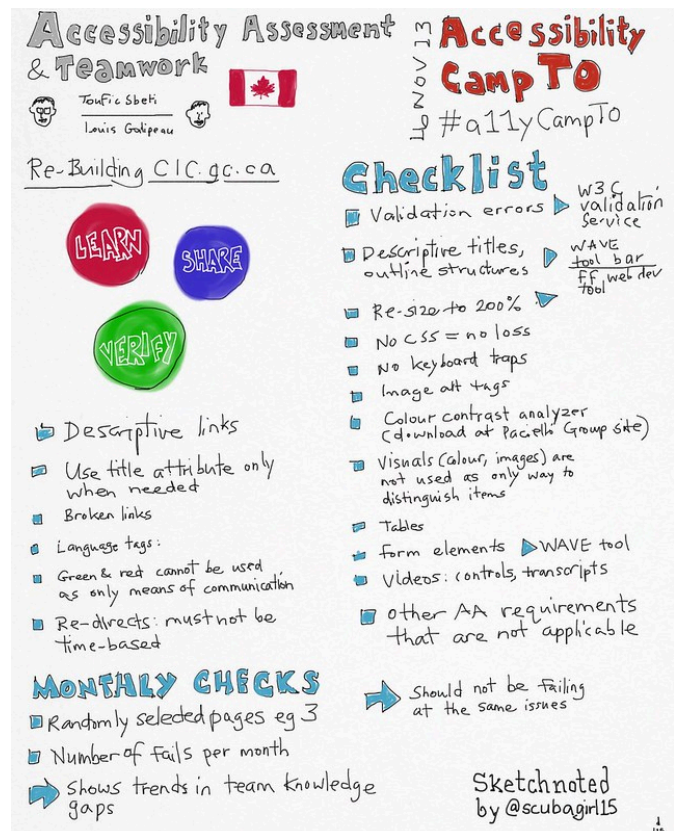 Accessibility Assessment
& Teamwork
Toufic Sbeiti
Louis Galipeau
16 NOV 13
Accessibility
Camp TO
#a11yCampTO
Re-Building CIC.gc.ca
LEARN
SHARE
VERIFY
Descriptive links
Use title attribute only
when needed
Broken links
Language tags:
Green & red cannot be used
as only means of communication
Re-directs: must not be
time-based
MONTHLY CHECKS
Randomly seleded pages eg 3
Number of fails per month
Shows trends in team knowledge
gaps
Checklist
Validation errors
W3C
validation
service
Descriptive titles,
outline structures
WAVE
tool bar
ff web dev
tool
Re-size to 200%
No CSS = no loss
No keyboard traps
Image alt tags
Colour contrast analyzer
(download at Paciello Group site)
Visuals (colour, images) are
not used as only way to
distinguish items
Tables
Form elements WAVE tool
Videos: controls, transcripts
other AA requirements
that are not applicable
Should not be failing
at the same issues
Sketchnoted
by @scubagirl15